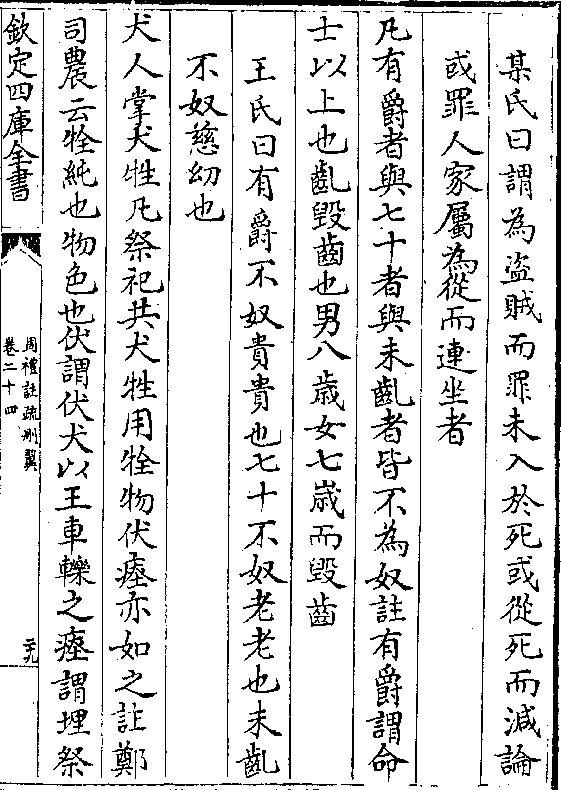 某氏曰謂為盜賊而罪未入於死或從死而減論
或罪人家屬為從而連坐者
凡有爵者與七十者與未齓者皆不為奴註有爵謂命
士以上也齓毀齒也男八歳女七歳而毀齒
王氏曰有爵不奴貴貴也七十不奴老老也未齓
不奴慈幼也
犬人掌犬牲凡祭祀共犬牲用牷物伏瘞亦如之註鄭
司農云牷純也物色也伏謂伏犬以王車轢之瘞謂埋祭
欽定四庫全書
周禮註疏刪翼
卷二十四
二九